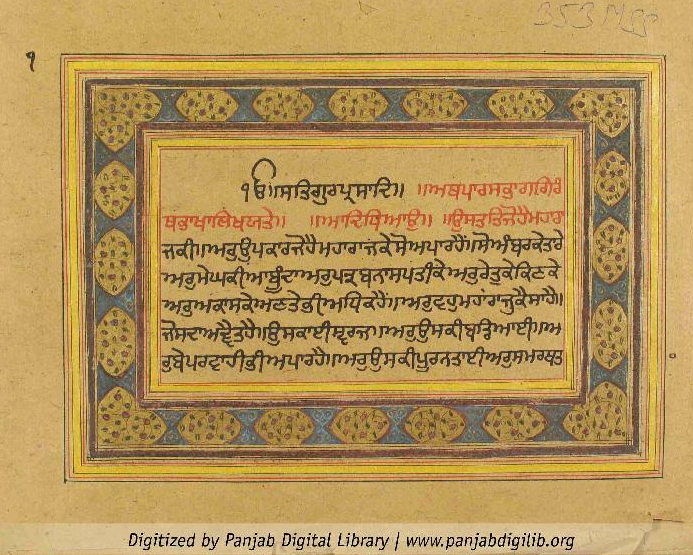 353 MSS
੧
ੴ ਸਤਿਗੁਰਪ੍ਰਸਾਦਿ॥ ॥ਅਥਪਾਰਸਭਾਗਗਿਰੰ
ਥਭਾਖਾਲਿਖਯਤੇ॥ ॥ਆਦਿਧਿਆਉ॥ ॥ਉਸਤਤਿਜੋਹੈਮਹਾਰਾ
ਜਕੀ॥ਅਰੁਉਪਕਾਰਜੋਹੈਮਹਾਰਾਜਕੇਸੋਅਪਾਰਹੈਂ॥ਸੋਅੰਬਰਕੇਤਾਰੇ
ਅਰੁਮੇਘਕੀਆਬੂੰਦਾਅਰੁਪਤ੍ਰਬਨਾਸਪਤੀਕੇਅਰੁਰੇਤੁਕੇਕਿਣਕੇ
ਅਰੁਅਕਾਸਕੇਅਣਤੇਭੀਅਧਿਕਹੈਂ॥ਅਰੁਵਹੁਮਹਾਂਰਾਜੁਕੈਸਾਹੈ॥
ਜੋਸਦਾਅਦ੍ਵੈਤਹੈ॥ਉਸਕਾਈਸ੍ਵਰਜਾ॥ਅਰੁਉਸਕੀਬਡਿਆਈ॥ਅ
ਰੁਬੇਪਰਵਾਹੀਭੀਅਪਾਰਹੈ॥ਅਰੁਉਸਕੀਪੂਰਨਤਾਈਅਰੁਸਮਰਥਤ
Digitized by Panjab Digital Library | www.panjabdigilib.org